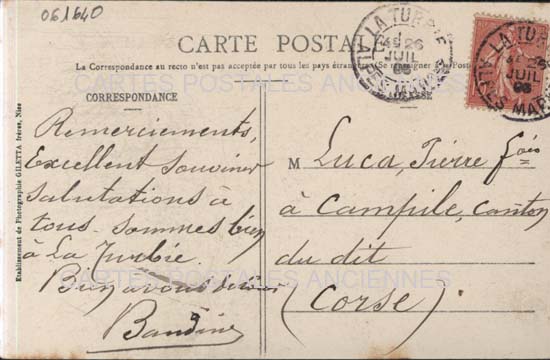 061640
CARTE POSTALE
La Correspondance au recto n'est pas acceptée par tous les pays étrangers (Se renseigner à la Poste)
CORRESPONDANCE
ADRESSE
LA TURBIE
26
JUIL
ALPES MARIT
LA TURBIE
26
JUIL
ALPES MARIT
Remerciements,
Excellent souvenir
salutations à
tous. sommes bien
à La Turbie.
Bien à vous
Baudin
M Luca, Pierre fois
à Campile, canton
du dit
(Corse)
Etablissement de Photographie GILETTA frères, Nice
CARTES POSTALES ANCIENNES
CARTES POSTALES ANCIENNES